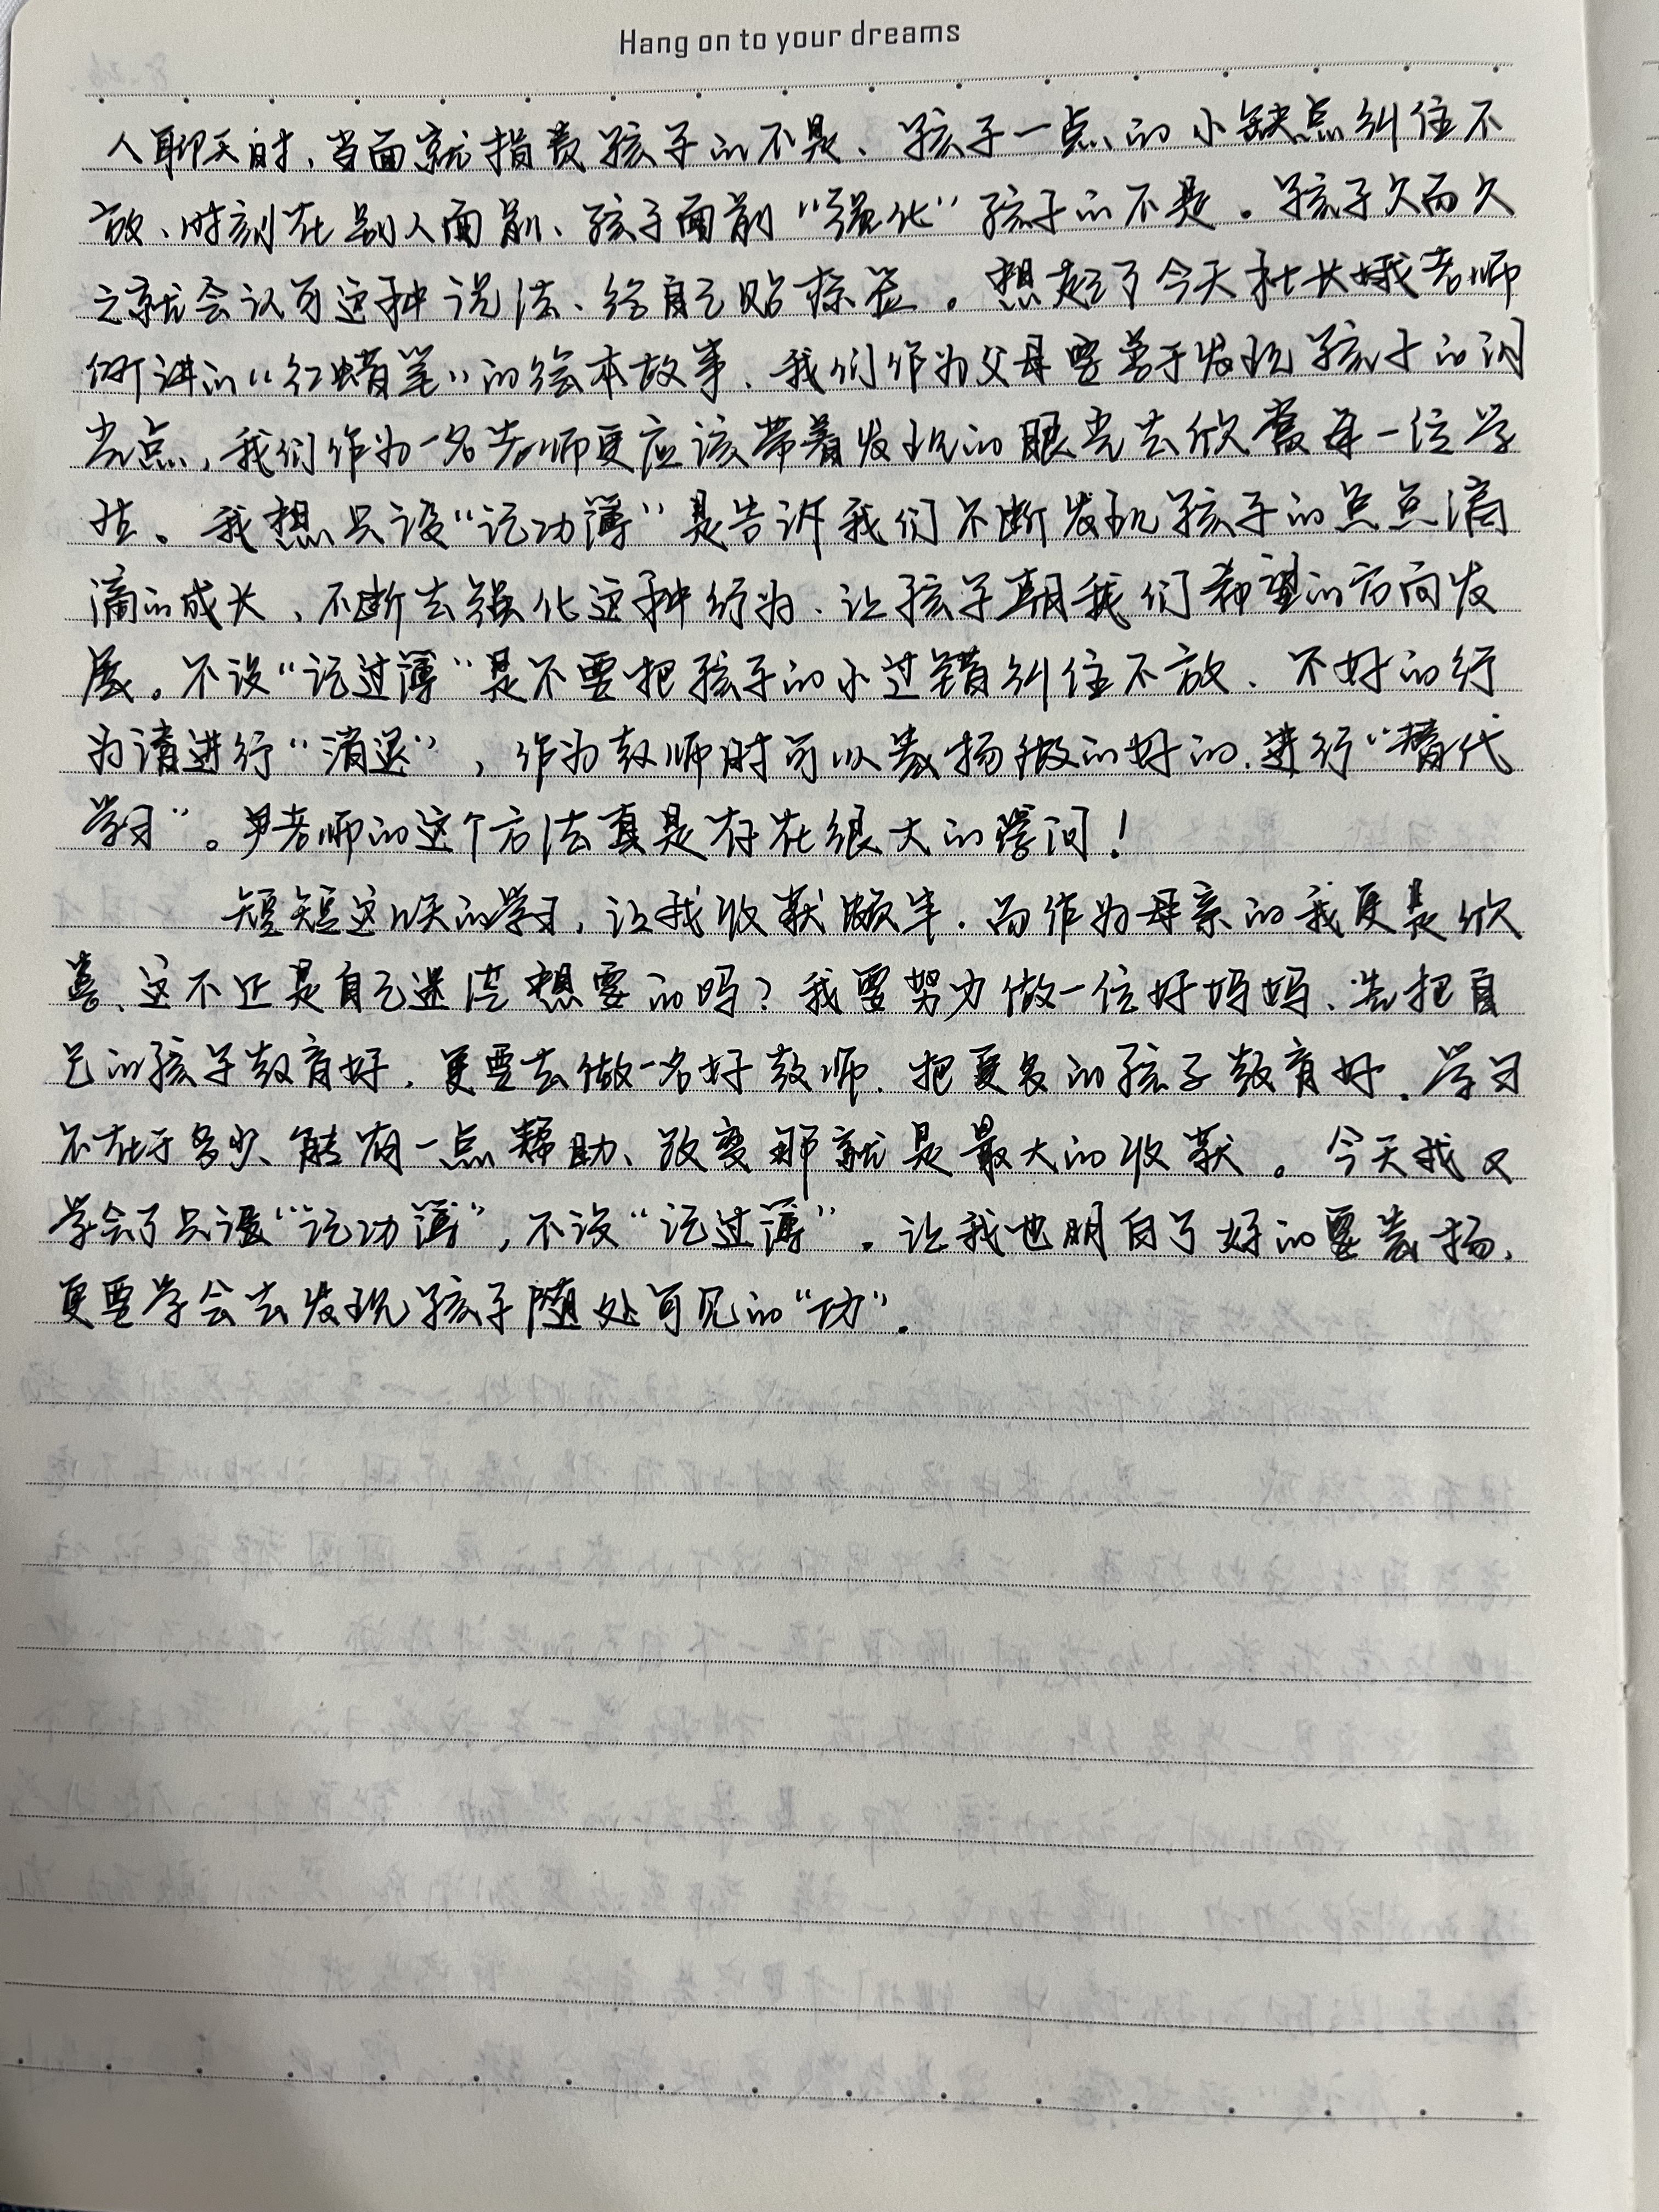 Hang on to your dreams
人聊天时，当面就指责孩子的不是、孩子一点的小缺点纠住不
放、时刻在别人面前、孩子面前“强化”孩子的不是。孩子久而久
之就会认可这种说法、给自己贴标签。想起了今天社长娥老师
所讲的“红蜡笔”的绘本故事、我们作为父母要善于发现孩子的闪
光点，我们作为一名老师更应该带着发现的眼光去欣赏每一位学
生。我想只设“记功簿”是告诉我们不断发现孩子的点点滴
滴的成长、不断去强化这种行为、让孩子朝我们希望的方向发
展。不设“记过簿”是不要把孩子的小过错纠住不放、不好的行
为请进行“消退”，作为教师时可以表扬做的好的、进行“替代
学习”。尹老师的这个方法真是存在很大的学问！
短短这几天的学习，让我收获颇丰．而作为母亲的我更是欣
喜、这不正是自己迷茫想要的吗？我要努力做一位好妈妈、先把自
己的孩子教育好，更要去做一名好教师、把更多的孩子教育好．学习
不在于多少、能有一点帮助、改变那就是最大的收获。今天我又
学会了只设“记功簿”，不设“记过簿”。让我也明白了好的要表扬、
更要学会去发现孩子随处可见的“功”．